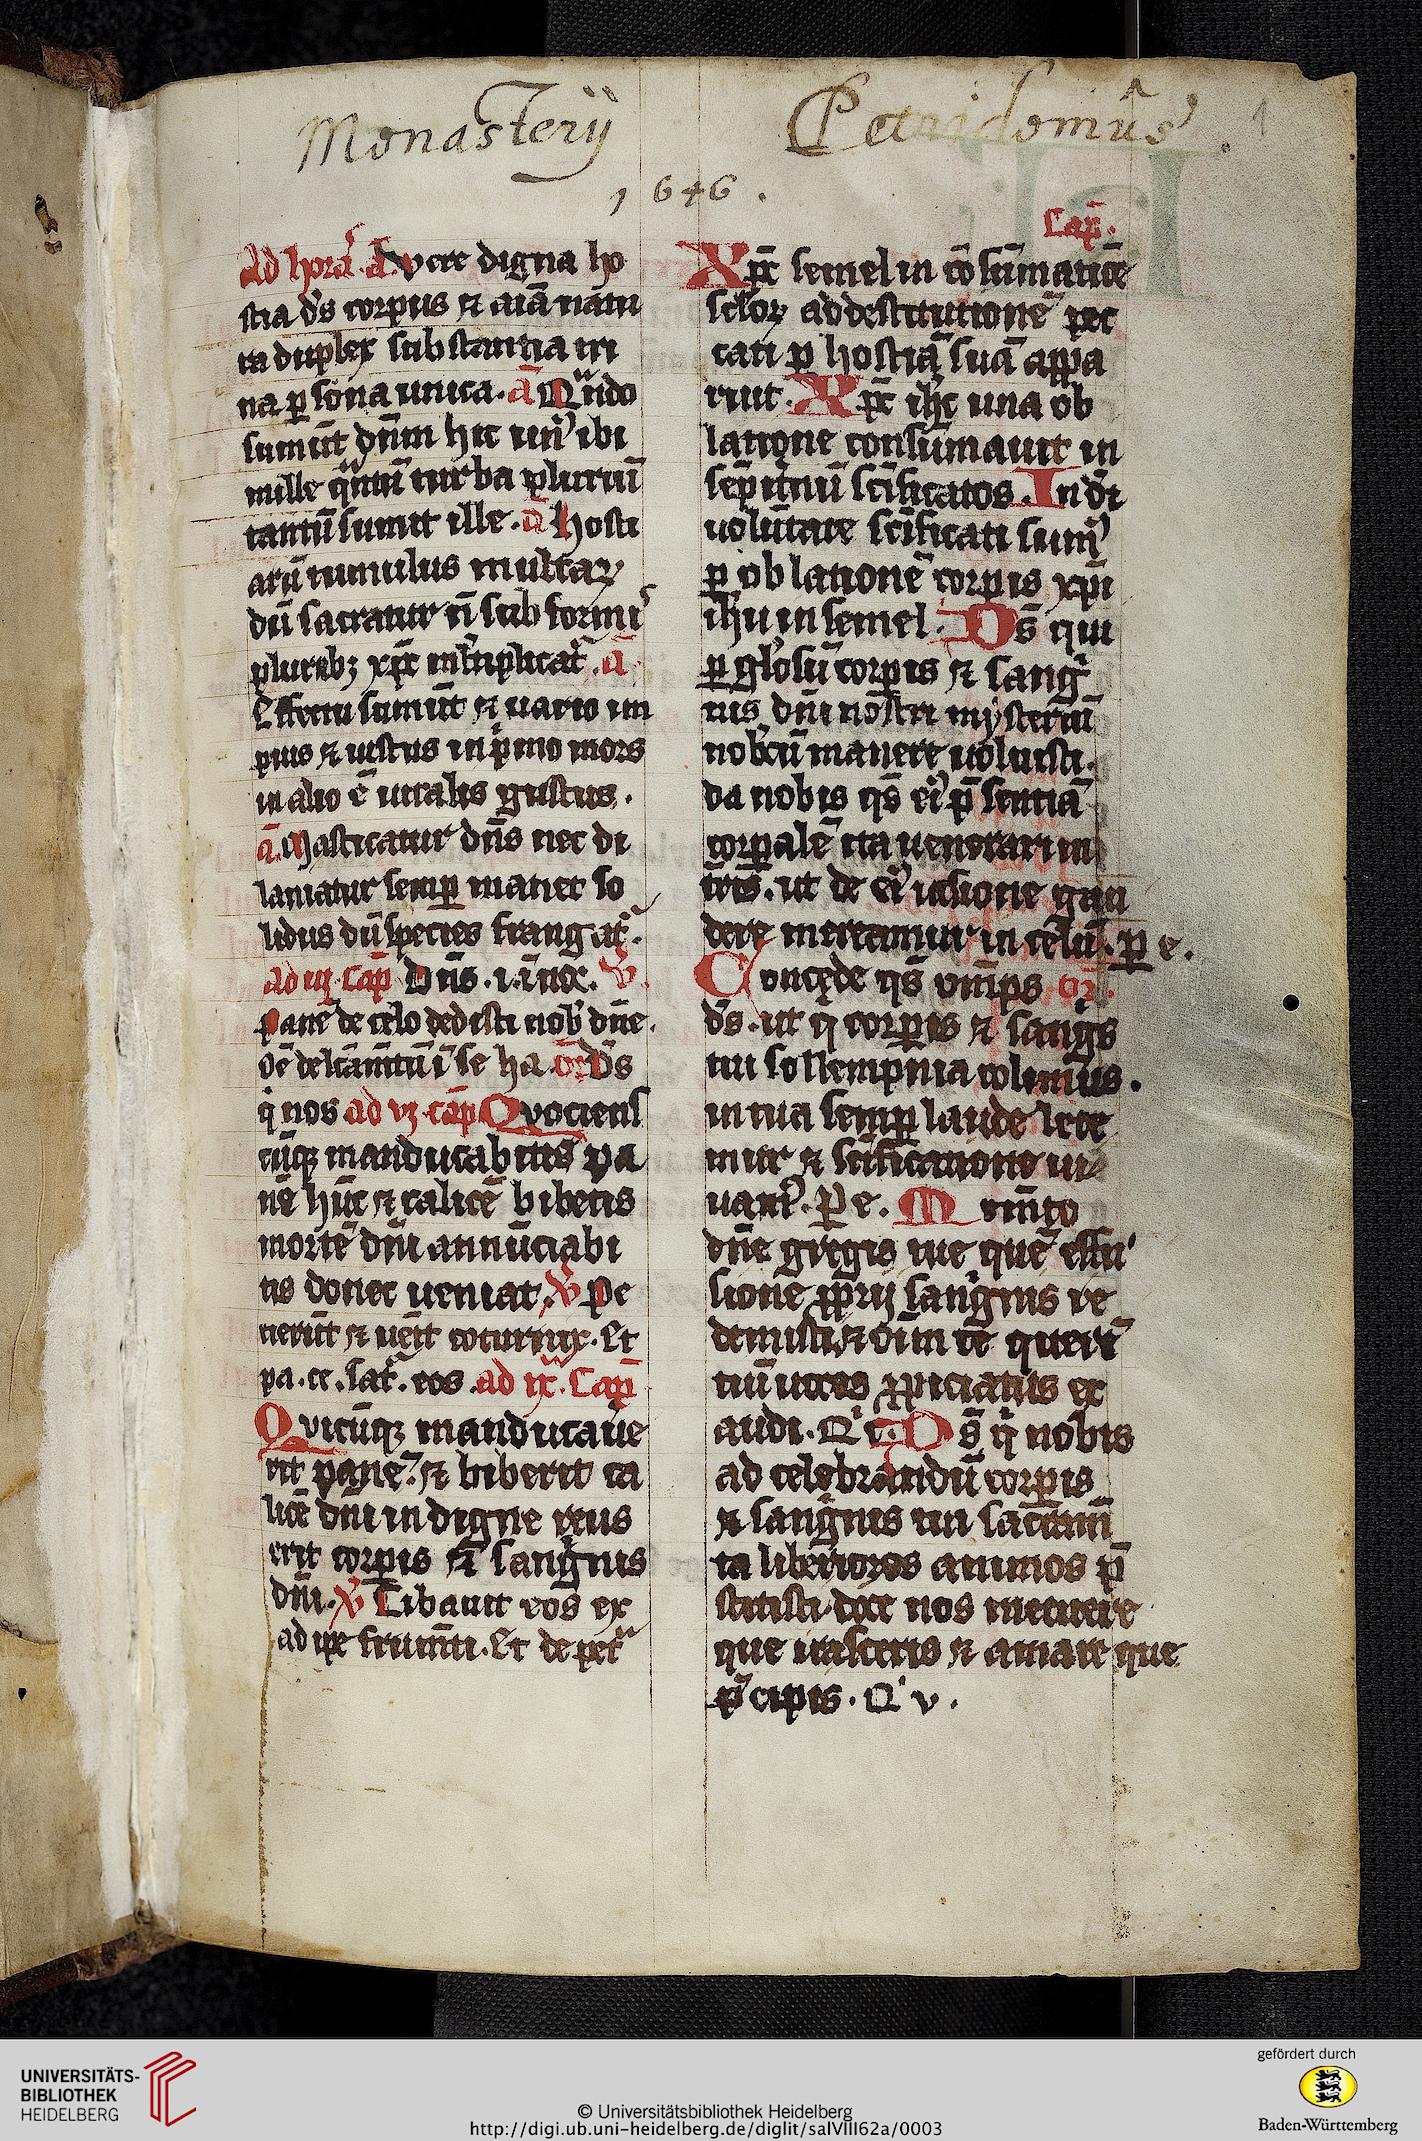 Monasterij Petridomûs
1
1646.
Ad horā. ā. vere digna ho
stia ds̄ corpus ⁊ aīa natu
ra duplex substantia in
na ꝑsona unica. ā Qn̄do
sumūt dn̄m hic unꝰ ibi
mille
tantū sumit ille. ā hosti
arū tumulus multaꝝ
dū sacratur ī sub formis
pluribꝫ xp̄c ml̄tiplicat᷑. ā
Effectu sumūt ⁊ uario im
pius ⁊ iustus in pͥmo mors
in alio ē uitalis gustus.
ā. Masticatur dn̄s nec di
laniatur semꝑ manet so
lidus dū species frangat᷑.
ad iij cap̄ Dn̄s. i. i noc. v̄.
Panē de celo dedisti nob̄ dn̄e.
Oē delcām̄tū ī se ha. or̄ Ds̄
qͥ nos ad vj cap̄ Quociens
cūqꝫ manducabitis pa
nē hūc ⁊ calicē bibetis
mortē dn̄i annūciabi
tis donec ueniat. v̄ Pe
tierūt ⁊ uēit coturnix. Et
pa. ce. sat᷑. eos. ad ix. Cap̄
Quicūqꝫ manducaūe
rit panē. ⁊ biberit ca
licē dn̄i indigne reus
erit corꝑis ⁊ sangͥnis
dn̄i. v̄ Cibauit eos ex
adipe frum̄ti. Et de pet᷑
Cap̄.
Xp̄c semel in cōsūmatiōe
sc̄loꝝ ad destitutionē pec
cati ꝑ hostiā suā appa
ruit. Xp̄c ih̄c una ob
latione consūmauit in
sēpit̄nū sc̄ificatos. In di
uolūtate sc̄ificati sumꝰ
ꝑ oblationē corꝑis xp̄i
ih̄u in semel. Ds̄ qui
ꝑ gl̄osū corꝑis ⁊ sangͥ
nis dn̄i nostri mysteriū
nob̄cū manere uoluisti.
da nobis qs̄ eiꝰ p̄sentiā
corꝑalē ita uenerari in
tris. ut de eiꝰ uisione gau
dere mereamur in celis. ꝑ e.
Concede qs̄ om̄ps or̄.
ds̄. ut qͥ corꝑis ⁊ sangͥs
tui sollempnia colimus.
in tua semꝑ laude lete
mur ⁊ sc̄ificatione ui
uam᷑. ꝑ e. Mem̄to
dn̄e gregis tue quē effu
sione ꝓprij sangͥnis re
demisti ⁊ oīm te querē
tiū uoces ꝓpiciatus ex
audi. Qͥ v. Ds̄ qͥ nobis
ad celebrandū corꝑis
⁊ sangͥnis tui sacram̄
ta liberiores animos p̄
stitisti. doce nos metuere
que irasceris ⁊ amare que
p̄cipis. Qͥ v.
UNIVERSITÄTS-
BIBLIOTHEK
HEIDELBERG
© Universitätsbibliothek Heidelberg
http://digi.ub.uni-heidelberg.de/diglit/salVIII62a/0003
gefördert durch
Baden-Württemberg